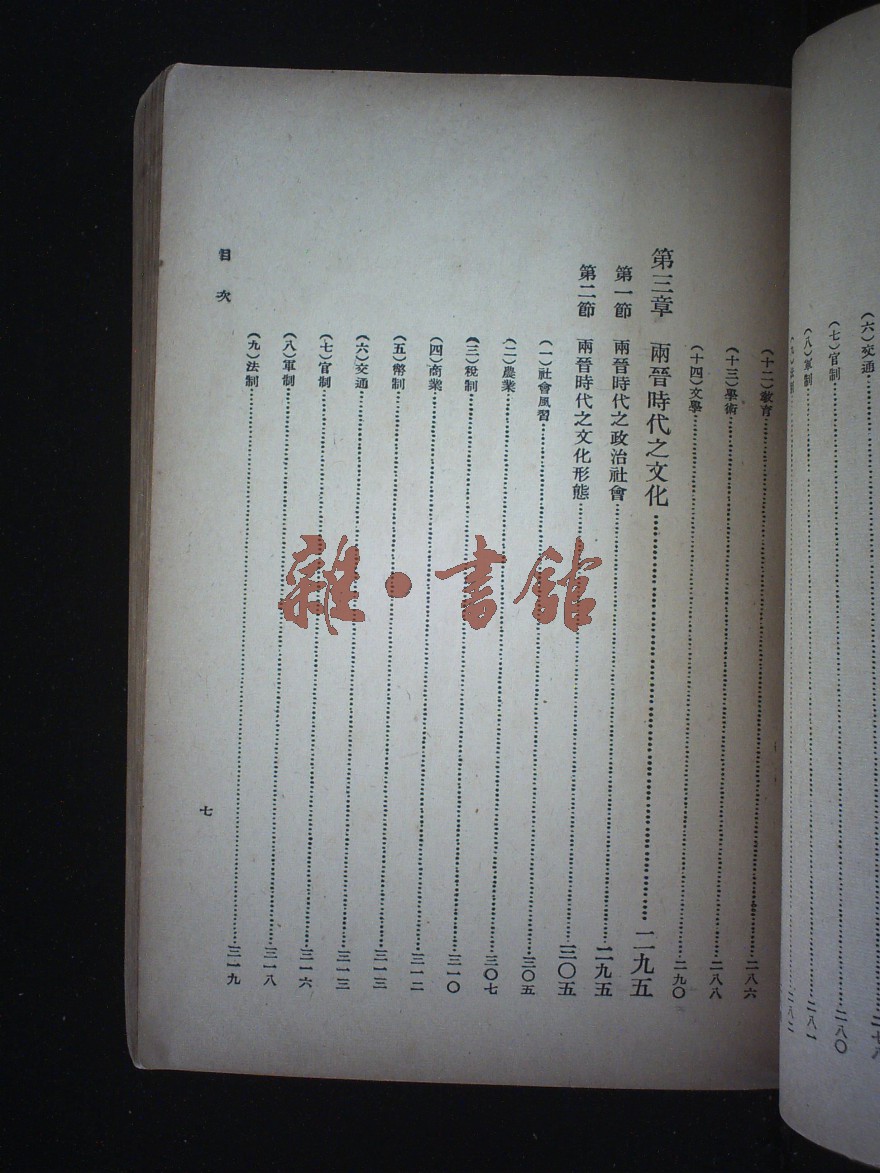 (六)交通
(七)官制……二八〇
(八)軍制……二八一
(九)法制……二八二
(十二)教育……二八六
(十三)學術……二八八
(十四)文學……二九〇
第三章 兩晉時代之文化……二九五
第一節 兩晉時代之政治社會……二九五
第二節 兩晉時代之文化形態……三〇五
(一)社會風習……三〇五
(二)農業……三〇七
(三)稅制……三一〇
(四)商業……三一二
(五)幣制……三一三
(六)交通……三一三
(七)官制……三一六
(八)軍制……三一八
(九)法制……三一九
目次
七
雜·書館